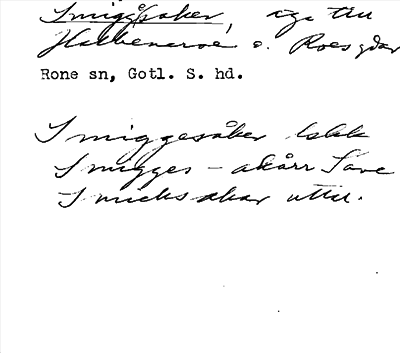 Smiggåsaker, äga till
Halbenarve o. Roes gdar
Rone sn, Gotl. S. hd.
Smiggesåker Lskk
Smigges-akårr Save
Smicksakar uttal.